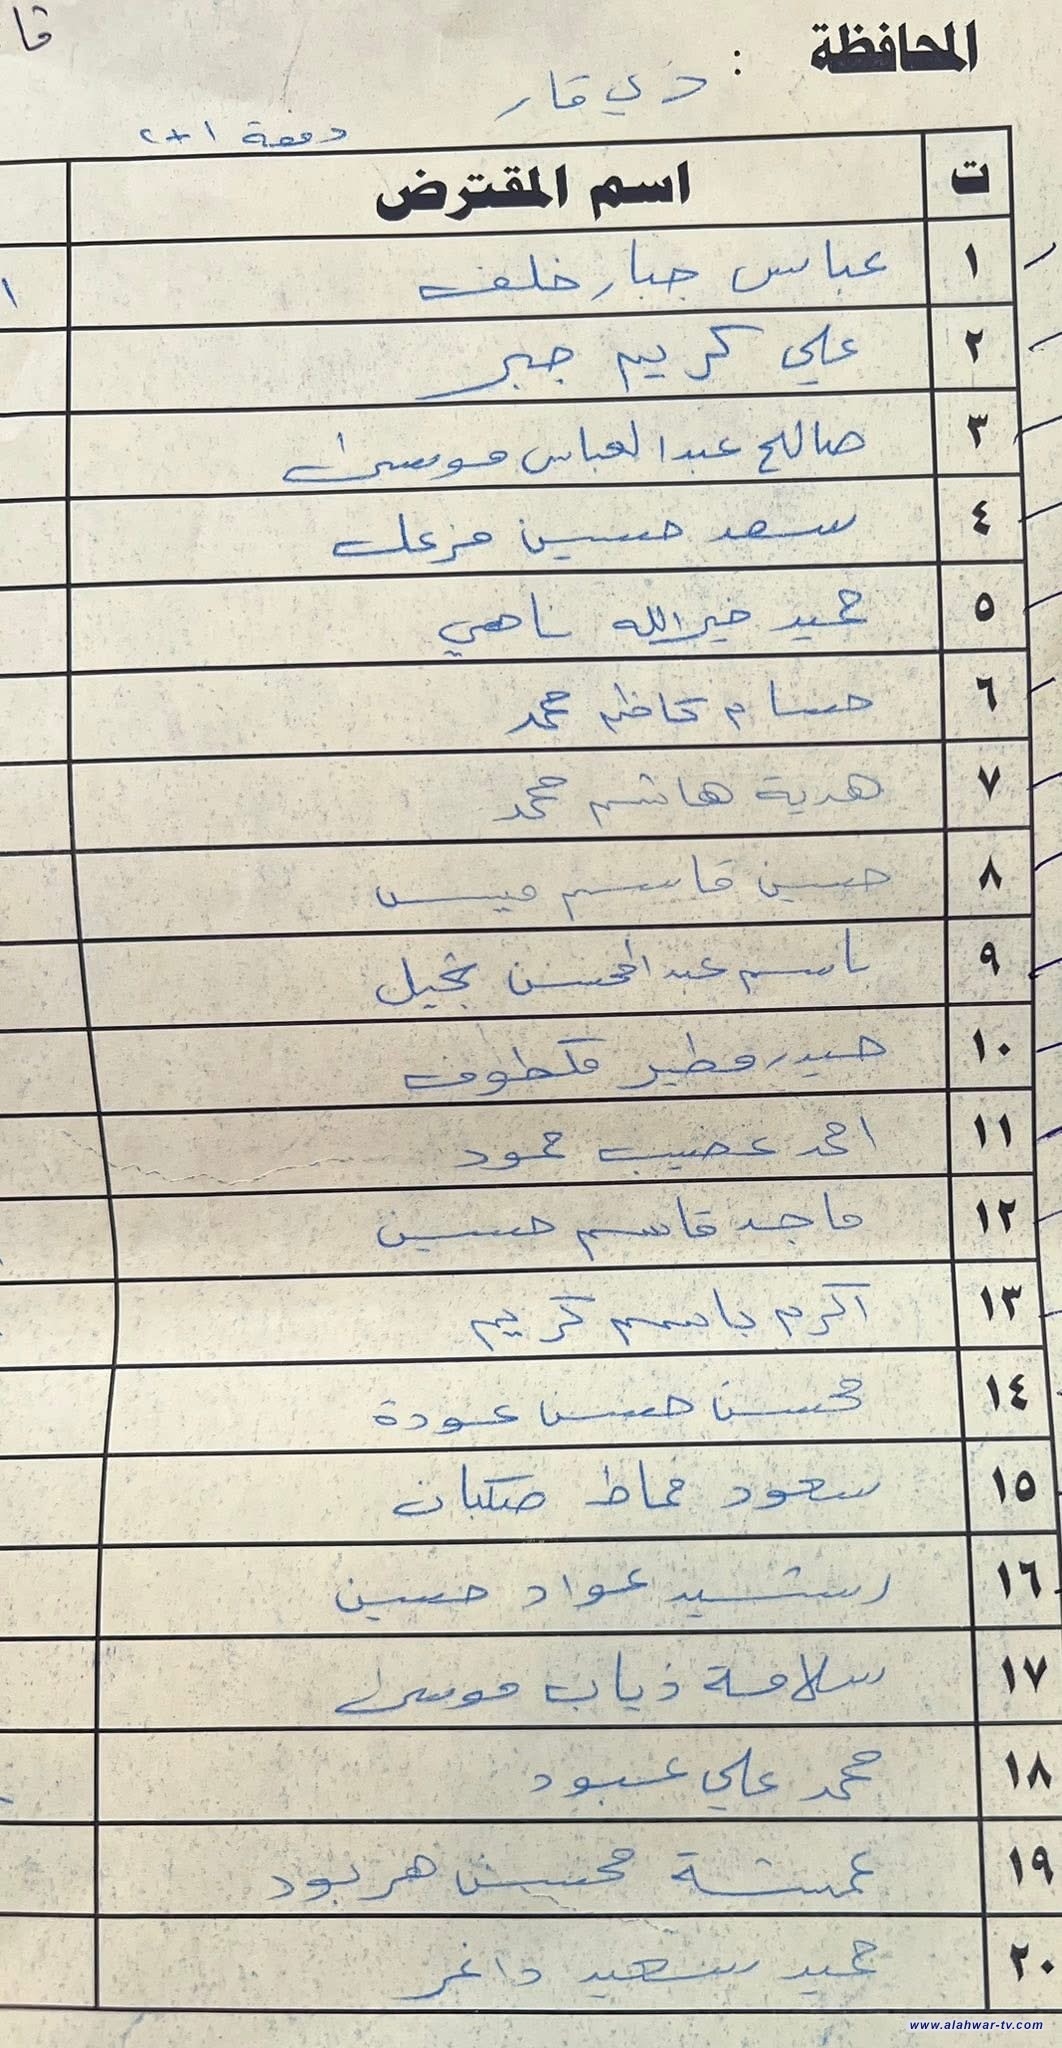 المحافظة :
ذي قار
دفعة ١+٢
ت اسم المقترض
١ عباس جبار خلف
٢ علي كريم جبر
٣ صالح عبد العباس موسى
٤ سعد حسين مزعل
٥ حميد خير الله ناهي
٦ حسام كاظم محمد
٧ هدية هاشم محمد
٨ حسين قاسم
٩ باسم عبد المحسن بخيل
١٠ حيدر مطير مكطوف
١١ احمد عصيب حمود
١٢ ماجد قاسم حسين
١٣ اكرم باسم كريم
١٤ محسن حسن عودة
١٥ سعود صكبان
١٦ رشيد عواد حسين
١٧ سلامة ذياب موسى
١٨ محمد علي عبود
١٩ عمشة محيسن هربود
٢٠ حميد سعيد داغر
www.alahwar-tv.com